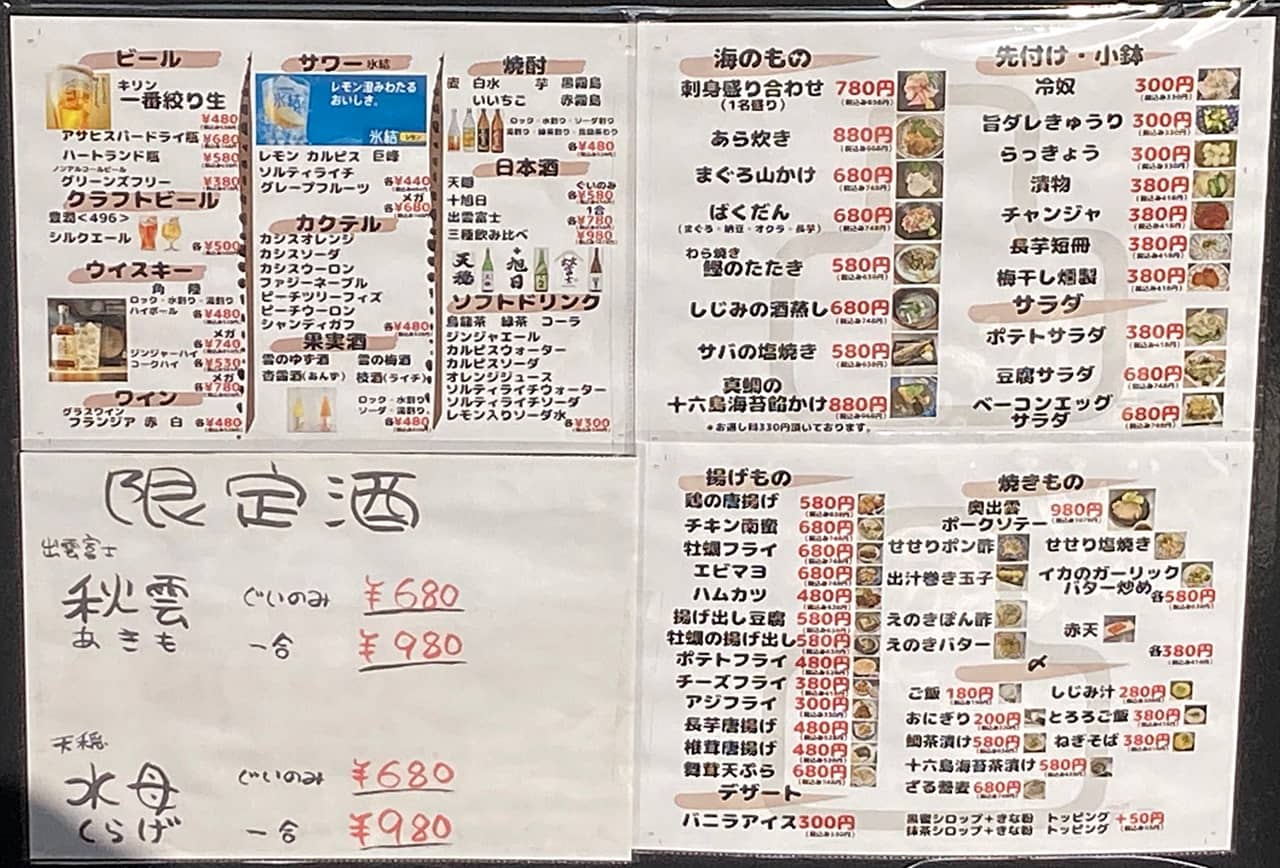 ビール
キリン
一番絞り生
¥480
アサヒスーパードライ瓶 ¥680
ハートランド瓶 ¥580
ノンアルコールビール
グリーンズフリー ¥380
クラフトビール
豊潤<496>
シルクエール
各¥500
ウイスキー
角 陸
ロック・水割り・湯割り
ハイボール 各¥480
メガ
¥740
ジンジャーハイ
コークハイ 各¥530
メガ
¥780
ワイン
グラスワイン
フランジア 赤 白 各¥480
サワー 氷結
レモン澄みわたる
おいしさ。
氷結
レモン カルピス 巨峰
ソルティライチ
グレープフルーツ 各¥440
メガ
各¥680
カクテル
カシスオレンジ
カシスソーダ
カシスウーロン
ファジーネーブル
ピーチツリーフィズ
ピーチウーロン
シャンディガフ 各¥480
果実酒
雲のゆず酒 雲の梅酒
杏露酒(あんず) 枝酒(ライチ)
ロック・水割り
ソーダ・湯割り
各¥480
焼酎
麦 白水 芋 黒霧島
いいちこ 赤霧島
ロック・水割り・ソーダ割り
各¥480
日本酒
天穏 ぐいのみ
十旭日 各¥580
出雲富士 1合
各¥780
三種飲み比べ ¥980
天穏
十旭日
ソフトドリンク
烏龍茶 緑茶 コーラ
ジンジャエール
カルピスウォーター
カルピスソーダ
オレンジジュース
ソルティライチウォーター
ソルティライチソーダ
レモン入りソーダ水
各¥300
海のもの
刺身盛り合わせ 780円
(1名盛り)
あら炊き 880円
まぐろ山かけ 680円
ばくだん 680円
(まぐろ・納豆・オクラ・長芋)
わら焼き
鰹のたたき 580円
しじみの酒蒸し 680円
サバの塩焼き 580円
真鯛の
十六島海苔餡かけ 880円
*お通し料330円頂いております。
先付け・小鉢
冷奴 300円
旨ダレきゅうり 300円
らっきょう 300円
漬物 380円
チャンジャ 380円
長芋短冊 380円
梅干し燻製 380円
サラダ
ポテトサラダ 380円
豆腐サラダ 680円
ベーコンエッグ
サラダ 680円
限定酒
出雲富士
秋雲 ぐいのみ ¥680
あきも 一合 ¥980
天穏
水母 ぐいのみ ¥680
くらげ 一合 ¥980
揚げもの
鶏の唐揚げ 580円
チキン南蛮 680円
牡蠣フライ 680円
エビマヨ 680円
ハムカツ 480円
揚げ出し豆腐 580円
牡蠣の揚げ出し 580円
ポテトフライ 480円
チーズフライ 380円
アジフライ 300円
長芋唐揚げ 480円
椎茸唐揚げ 480円
舞茸天ぷら 680円
デザート
バニラアイス 300円
黒蜜シロップ+きな粉 トッピング +50円
抹茶シロップ+きな粉 トッピング
焼きもの
奥出雲
ポークソテー 980円
せせりポン酢 せせり塩焼き
出汁巻き玉子 イカのガーリック
バター炒め 各580円
えのきぽん酢 赤天
えのきバター 各380円
〆
ご飯 180円 しじみ汁 280円
おにぎり 200円 とろろご飯 380円
鯛茶漬け 580円 ねぎそば 380円
十六島海苔茶漬け 580円
ざる蕎麦 680円